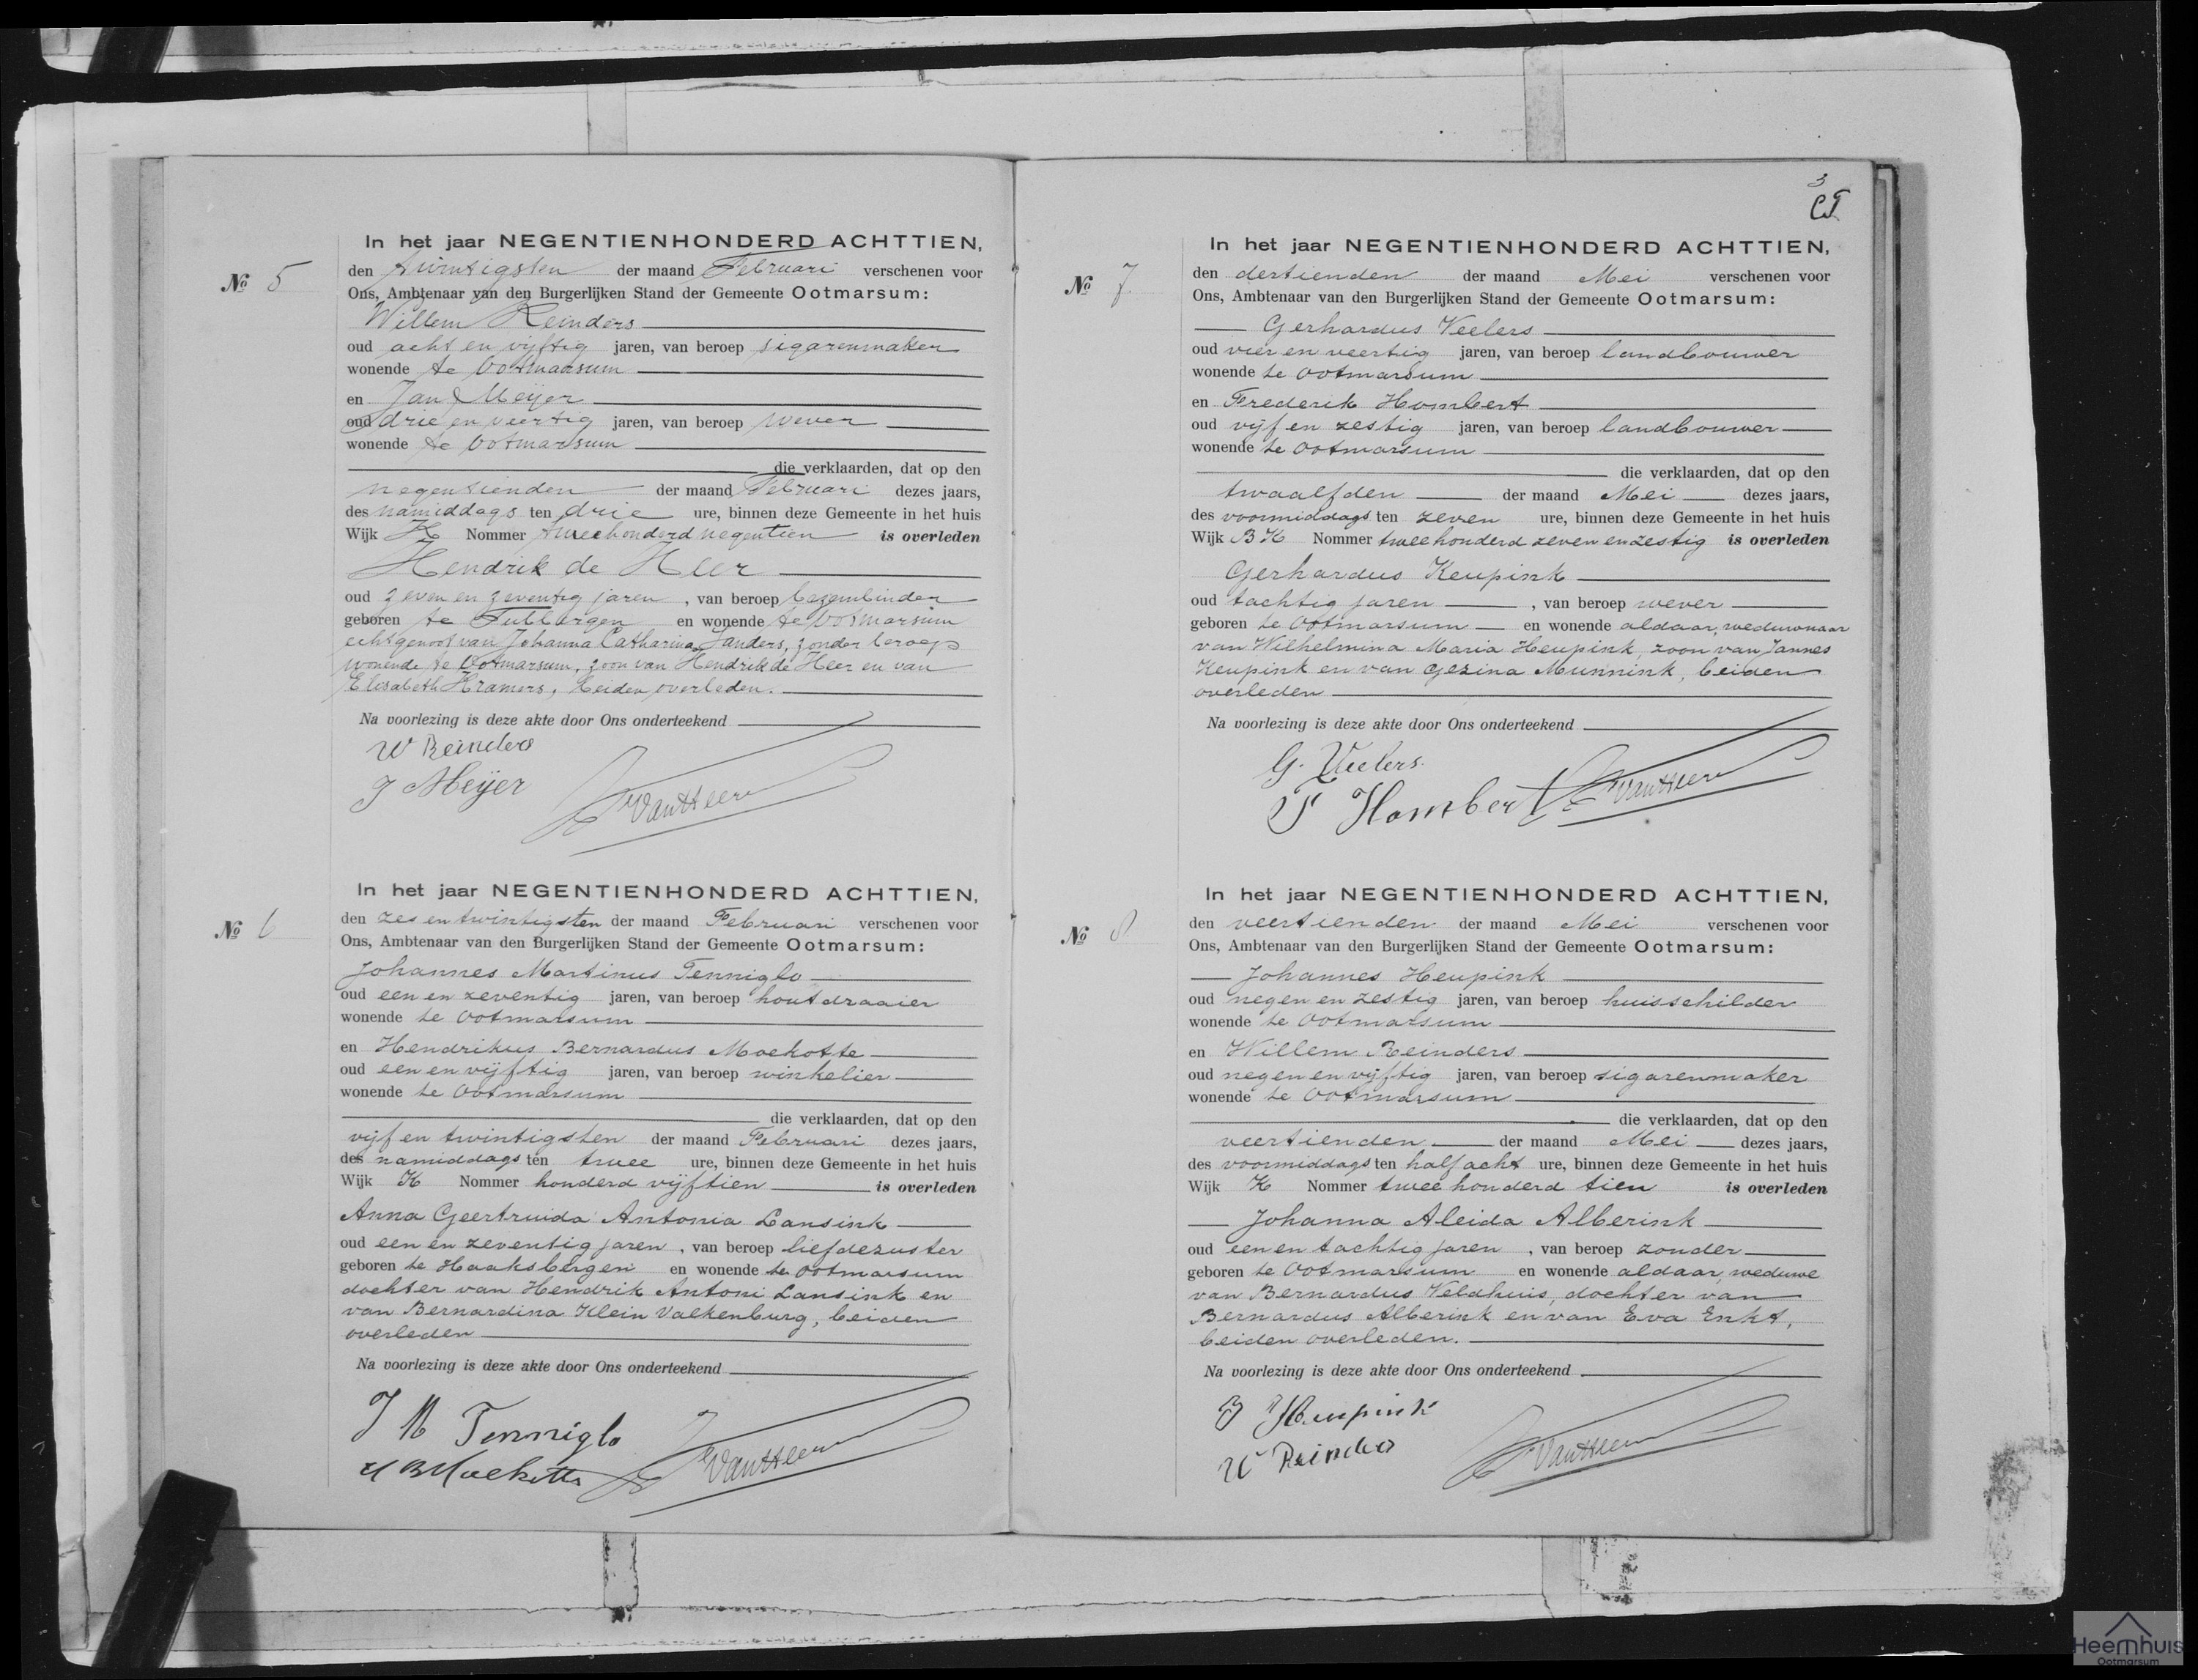 No 5
In het jaar NEGENTIENHONDERD ACHTTIEN,
den twintigsten der maand Februari verschenen voor
Ons, Ambtenaar van den Burgerlijken Stand der Gemeente Ootmarsum:
Willem Reinders
oud acht en vijftig jaren, van beroep sigarenmaker
wonende te Ootmarsum
en Jan Meijer
oud drie en veertig jaren, van beroep wever
wonende te Ootmarsum
die verklaarden, dat op den
negentienden der maand Februari dezes jaars,
des namiddags ten drie ure, binnen deze Gemeente in het huis
Wijk K Nommer tweehonderd negentien is overleden
Hendrik de Heer
oud zeven en zeventig jaren, van beroep bezembinder
geboren te Tubbergen en wonende te Ootmarsum
echtgenoot van Johanna Catharina Sanders, zonder beroep
wonende te Ootmarsum, zoon van Hendrik de Heer en van
Elisabeth Kramers, beiden overleden.
Na voorlezing is deze akte door Ons onderteekend
W Reinders
J Meijer
No 6
In het jaar NEGENTIENHONDERD ACHTTIEN,
den zes en twintigsten der maand Februari verschenen voor
Ons, Ambtenaar van den Burgerlijken Stand der Gemeente Ootmarsum:
Johannes Martinus Tenniglo
oud een en zeventig jaren, van beroep houtdraaier
wonende te Ootmarsum
en Hendrikus Bernardus Moekotte
oud een en vijftig jaren, van beroep winkelier
wonende te Ootmarsum
die verklaarden, dat op den
vijf en twintigsten der maand Februari dezes jaars,
des namiddags ten twee ure, binnen deze Gemeente in het huis
Wijk K Nommer honderd vijftien is overleden
Anna Geertruida Antonia Lansink
oud een en zeventig jaren, van beroep liefdezuster
geboren te Haaksbergen en wonende te Ootmarsum
dochter van Hendrik Antoni Lansink en
van Bernardina Klein Valkenburg, beiden
overleden
Na voorlezing is deze akte door Ons onderteekend
J M Tenniglo
H B Moekotte
3
No 7.
In het jaar NEGENTIENHONDERD ACHTTIEN,
den dertienden der maand Mei verschenen voor
Ons, Ambtenaar van den Burgerlijken Stand der Gemeente Ootmarsum:
Gerhardus Veelers
oud vier en veertig jaren, van beroep landbouwer
wonende te Ootmarsum
en Frederik Hombert
oud vijf en zestig jaren, van beroep landbouwer
wonende te Ootmarsum
die verklaarden, dat op den
twaalfden der maand Mei dezes jaars,
des voormiddags ten zeven ure, binnen deze Gemeente in het huis
Wijk BK Nommer twee honderd zeven en zestig is overleden
Gerhardus Keupink
oud tachtig jaren, van beroep wever
geboren te Ootmarsum en wonende aldaar, weduwnaar
van Wilhelmina Maria Heupink, zoon van Jannes
Keupink en van Gezina Munnink, beiden
overleden
Na voorlezing is deze akte door Ons onderteekend
G. Veelers.
F Hombert
No 8
In het jaar NEGENTIENHONDERD ACHTTIEN,
den veertienden der maand Mei verschenen voor
Ons, Ambtenaar van den Burgerlijken Stand der Gemeente Ootmarsum:
Johannes Heupink
oud negen en zestig jaren, van beroep huisschilder
wonende te Ootmarsum
en Willem Reinders
oud negen en vijftig jaren, van beroep sigarenmaker
wonende te Ootmarsum
die verklaarden, dat op den
veertienden der maand Mei dezes jaars,
des voormiddags ten half acht ure, binnen deze Gemeente in het huis
Wijk K Nommer twee honderd tien is overleden
Johanna Aleida Alberink
oud een en tachtig jaren, van beroep zonder
geboren te Ootmarsum en wonende aldaar, weduwe
van Bernardus Veldhuis, dochter van
Bernardus Alberink en van Eva Enkt,
beiden overleden.
Na voorlezing is deze akte door Ons onderteekend
J Heupink
W Reinders
Heemhuis
Ootmarsum